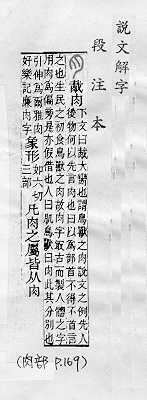 說文解字
段注本
胾肉 下文曰胾大臠也謂鳥獸之肉說文之例先人
後物何以先言肉也曰以爲部首不得不首言
之也生民之初食鳥獸之肉故肉字冣古而製人體之字
用肉爲偏旁是亦假借也人曰肌鳥獸曰肉此其分別也
引伸爲爾雅肉
好樂記廉肉字
象形 如六切
三部
凡肉之屬皆从肉
(肉部 P.169)